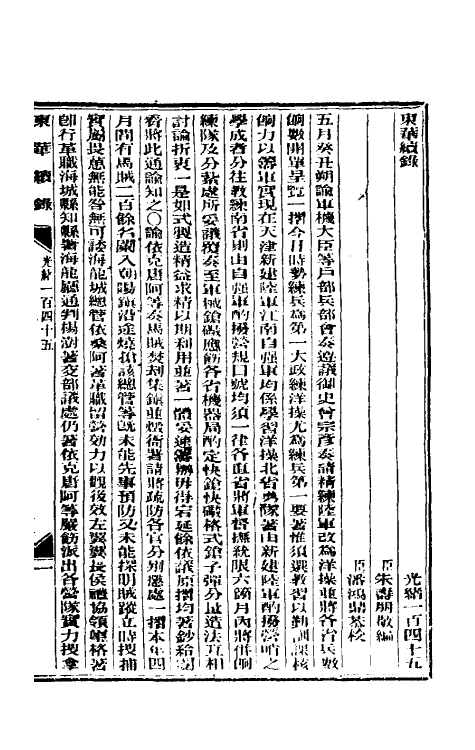 東華續錄　光緒一百四十五
臣朱壽朋敬編
臣潘鴻鼎恭校
五月癸丑朔諭軍機大臣等戶部兵部會奏遵議御史曾宗彥奏請精練陸軍改為洋操並將各省兵數
餉數開單呈覽一摺今日時勢練兵為第一大政練洋操尤為練兵第一要著惟須選教習以勤訓課核
餉力以籌軍實現在天津新建陸軍江南自强軍均係學習洋操北省勇隊著由新建陸軍酌撥營哨之
學成者分往教練南省則由自强軍酌撥營規口號均須一律各直省將軍督撫統限六個月內將併餉
練隊及分紮處所妥議覆奏至軍械鎗礮應飭各省機器局酌定快鎗快礮格式鎗子彈分量造法互相
討論折衷一是如式製造精益求精以期利用並著一體妥速籌辦毋得宕延餘依議原摺均著鈔給閱
看將此通諭知之〇諭依克唐阿等奏馬賊焚刦集鎮並燬衙署請將疏防各官分別懲處一摺本年四
月間有馬賊二百餘名闖入朝陽鎮沿途燒搶該總管等既未能先事預防又未能探明賊蹤立時搜捕
實屬畏葸無能咎無可諉海龍城總管依桑阿著革職留營效力以觀後效左翼翼長侯
協領
著
即行革職海城縣知縣署海龍廳通判楊
著交部議處仍著依克唐阿等嚴飭派出各營隊實力搜拿
東華續錄　光緒一百四十五　一